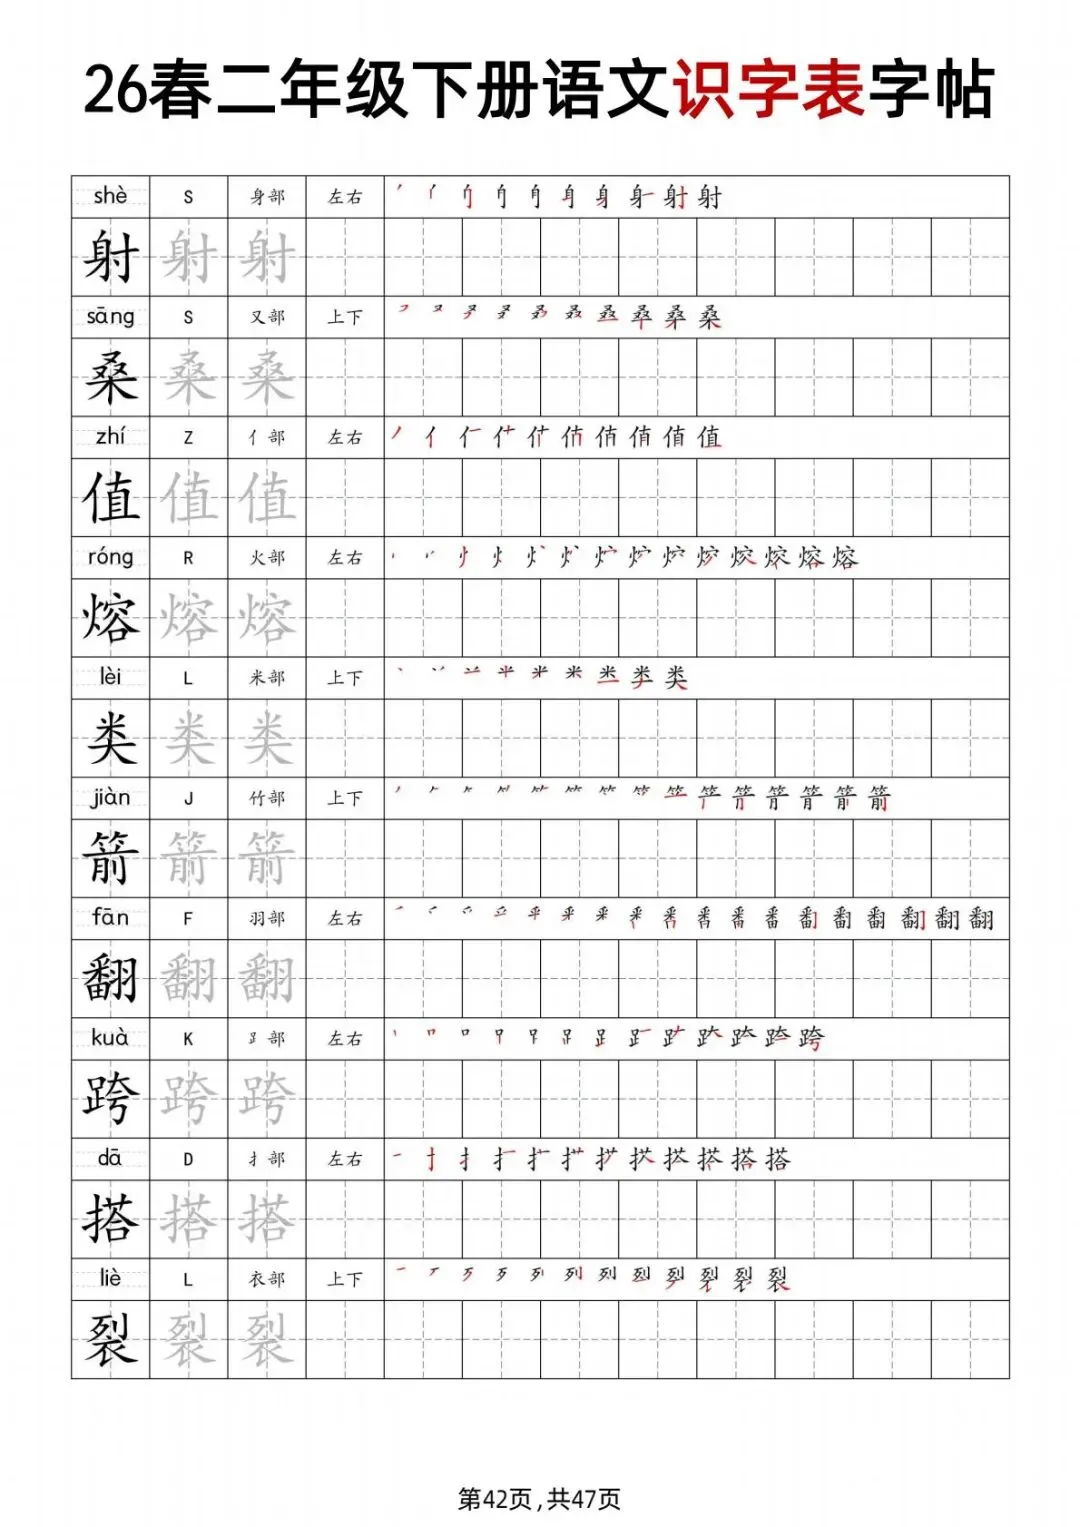 26春二年级下册语文识字表字帖
shè S 身部 左右 射
射 射 射
sāng S 又部 上下 桑
桑 桑 桑
zhí Z 亻部 左右 值
值 值 值
róng R 火部 左右 熔
熔 熔 熔
lèi L 米部 上下 类
类 类 类
jiàn J 竹部 上下 箭
箭 箭 箭
fān F 羽部 左右 翻
翻 翻 翻
kuà K 𧾷部 左右 跨
跨 跨 跨
dā D 扌部 左右 搭
搭 搭 搭
liè L 衣部 上下 裂
裂 裂 裂
第42页,共47页